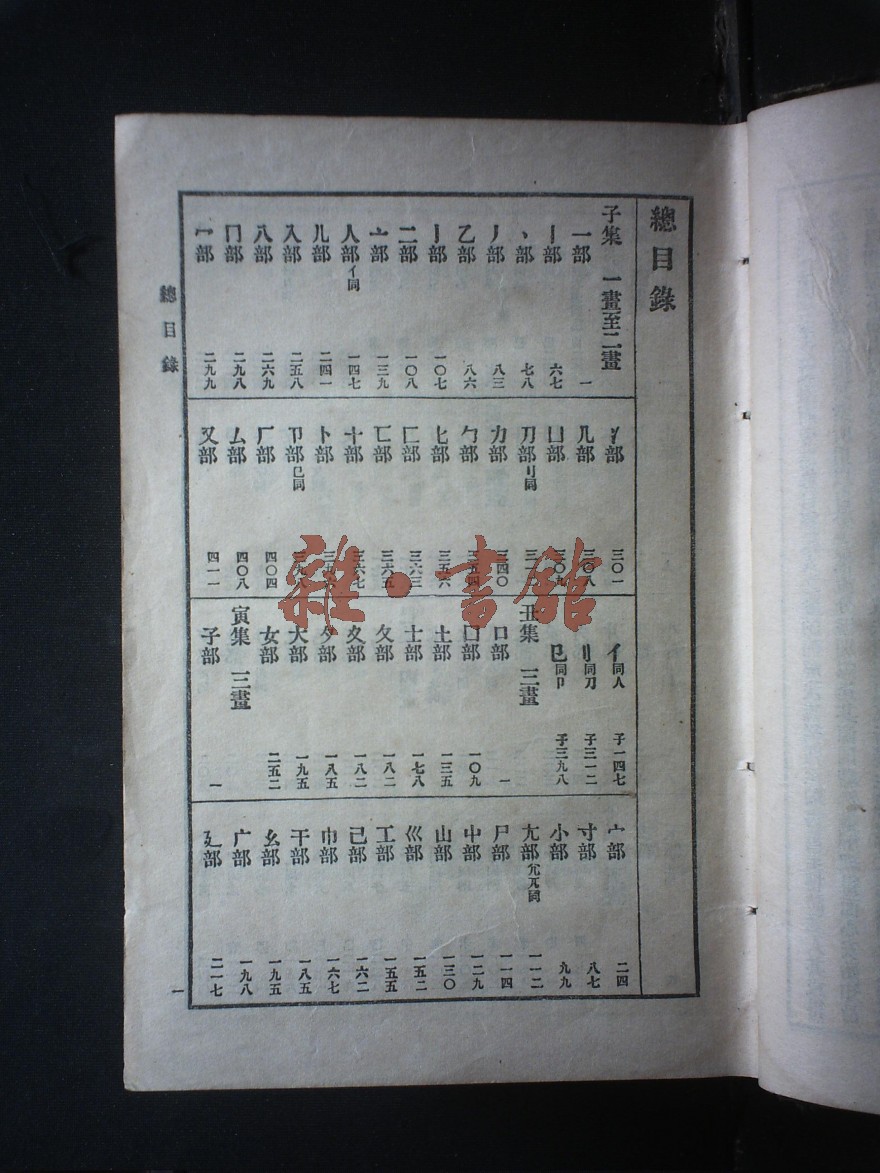 總目錄
子集 一畫至二畫
一部 一
丨部 六七
丶部 七八
丿部 八三
乙部 八六
亅部 一〇七
二部 一〇八
亠部 一三九
人部亻同 一四七
儿部 二四一
入部 二五八
八部 二六九
冂部 二九八
冖部 二九九
冫部 三〇一
几部 三〇八
凵部 三〇九
刀部刂同 三一二
力部 三四〇
勹部 三五四
匕部 三五六
匚部 三六三
匸部 三六五
十部 三六七
卜部
卩部㔾同 三九八
厂部 四〇四
厶部 四〇八
又部 四一一
亻同人 子一四七
刂同刀 子三一二
㔾同卩 子三九八
丑集 三畫
口部 一
囗部 一〇九
土部 一三五
士部 一七八
夂部 一八二
夊部 一八二
夕部 一八五
大部 一九五
女部 二五二
寅集 三畫
子部 一
宀部 二四
寸部 八七
小部 九九
尢部尣兀同 一一二
尸部 一一四
屮部 一二九
山部 一三〇
巛部 一五二
工部 一五五
己部 一六二
巾部 一六七
干部 一八五
幺部 一九五
广部 一九八
廴部 二一七
總目錄
一
雜·書館